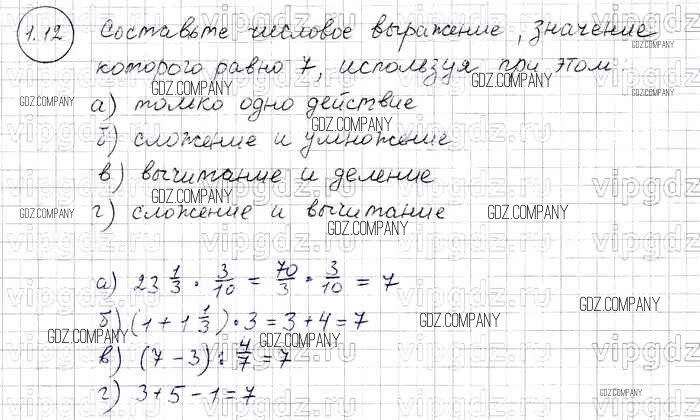 1.12 Составьте числовое выражение, значение
которого равно 7, используя при этом
GDZ.COMPANY
а) только одно действие
GDZ.COMPANY
б) сложение и умножение
в) вычитание и деление
GDZ.COMPANY
г) сложение и вычитание
GDZ.COMPANY
а) 23 1/3 · 3/10 = 70/3 · 3/10 = 7
б) (1 + 1 1/3) · 3 = 3 + 4 = 7
GDZ.COMPANY
в) (7 - 3) : 4/7 = 7
г) 3 + 5 - 1 = 7
GDZ.COMPANY